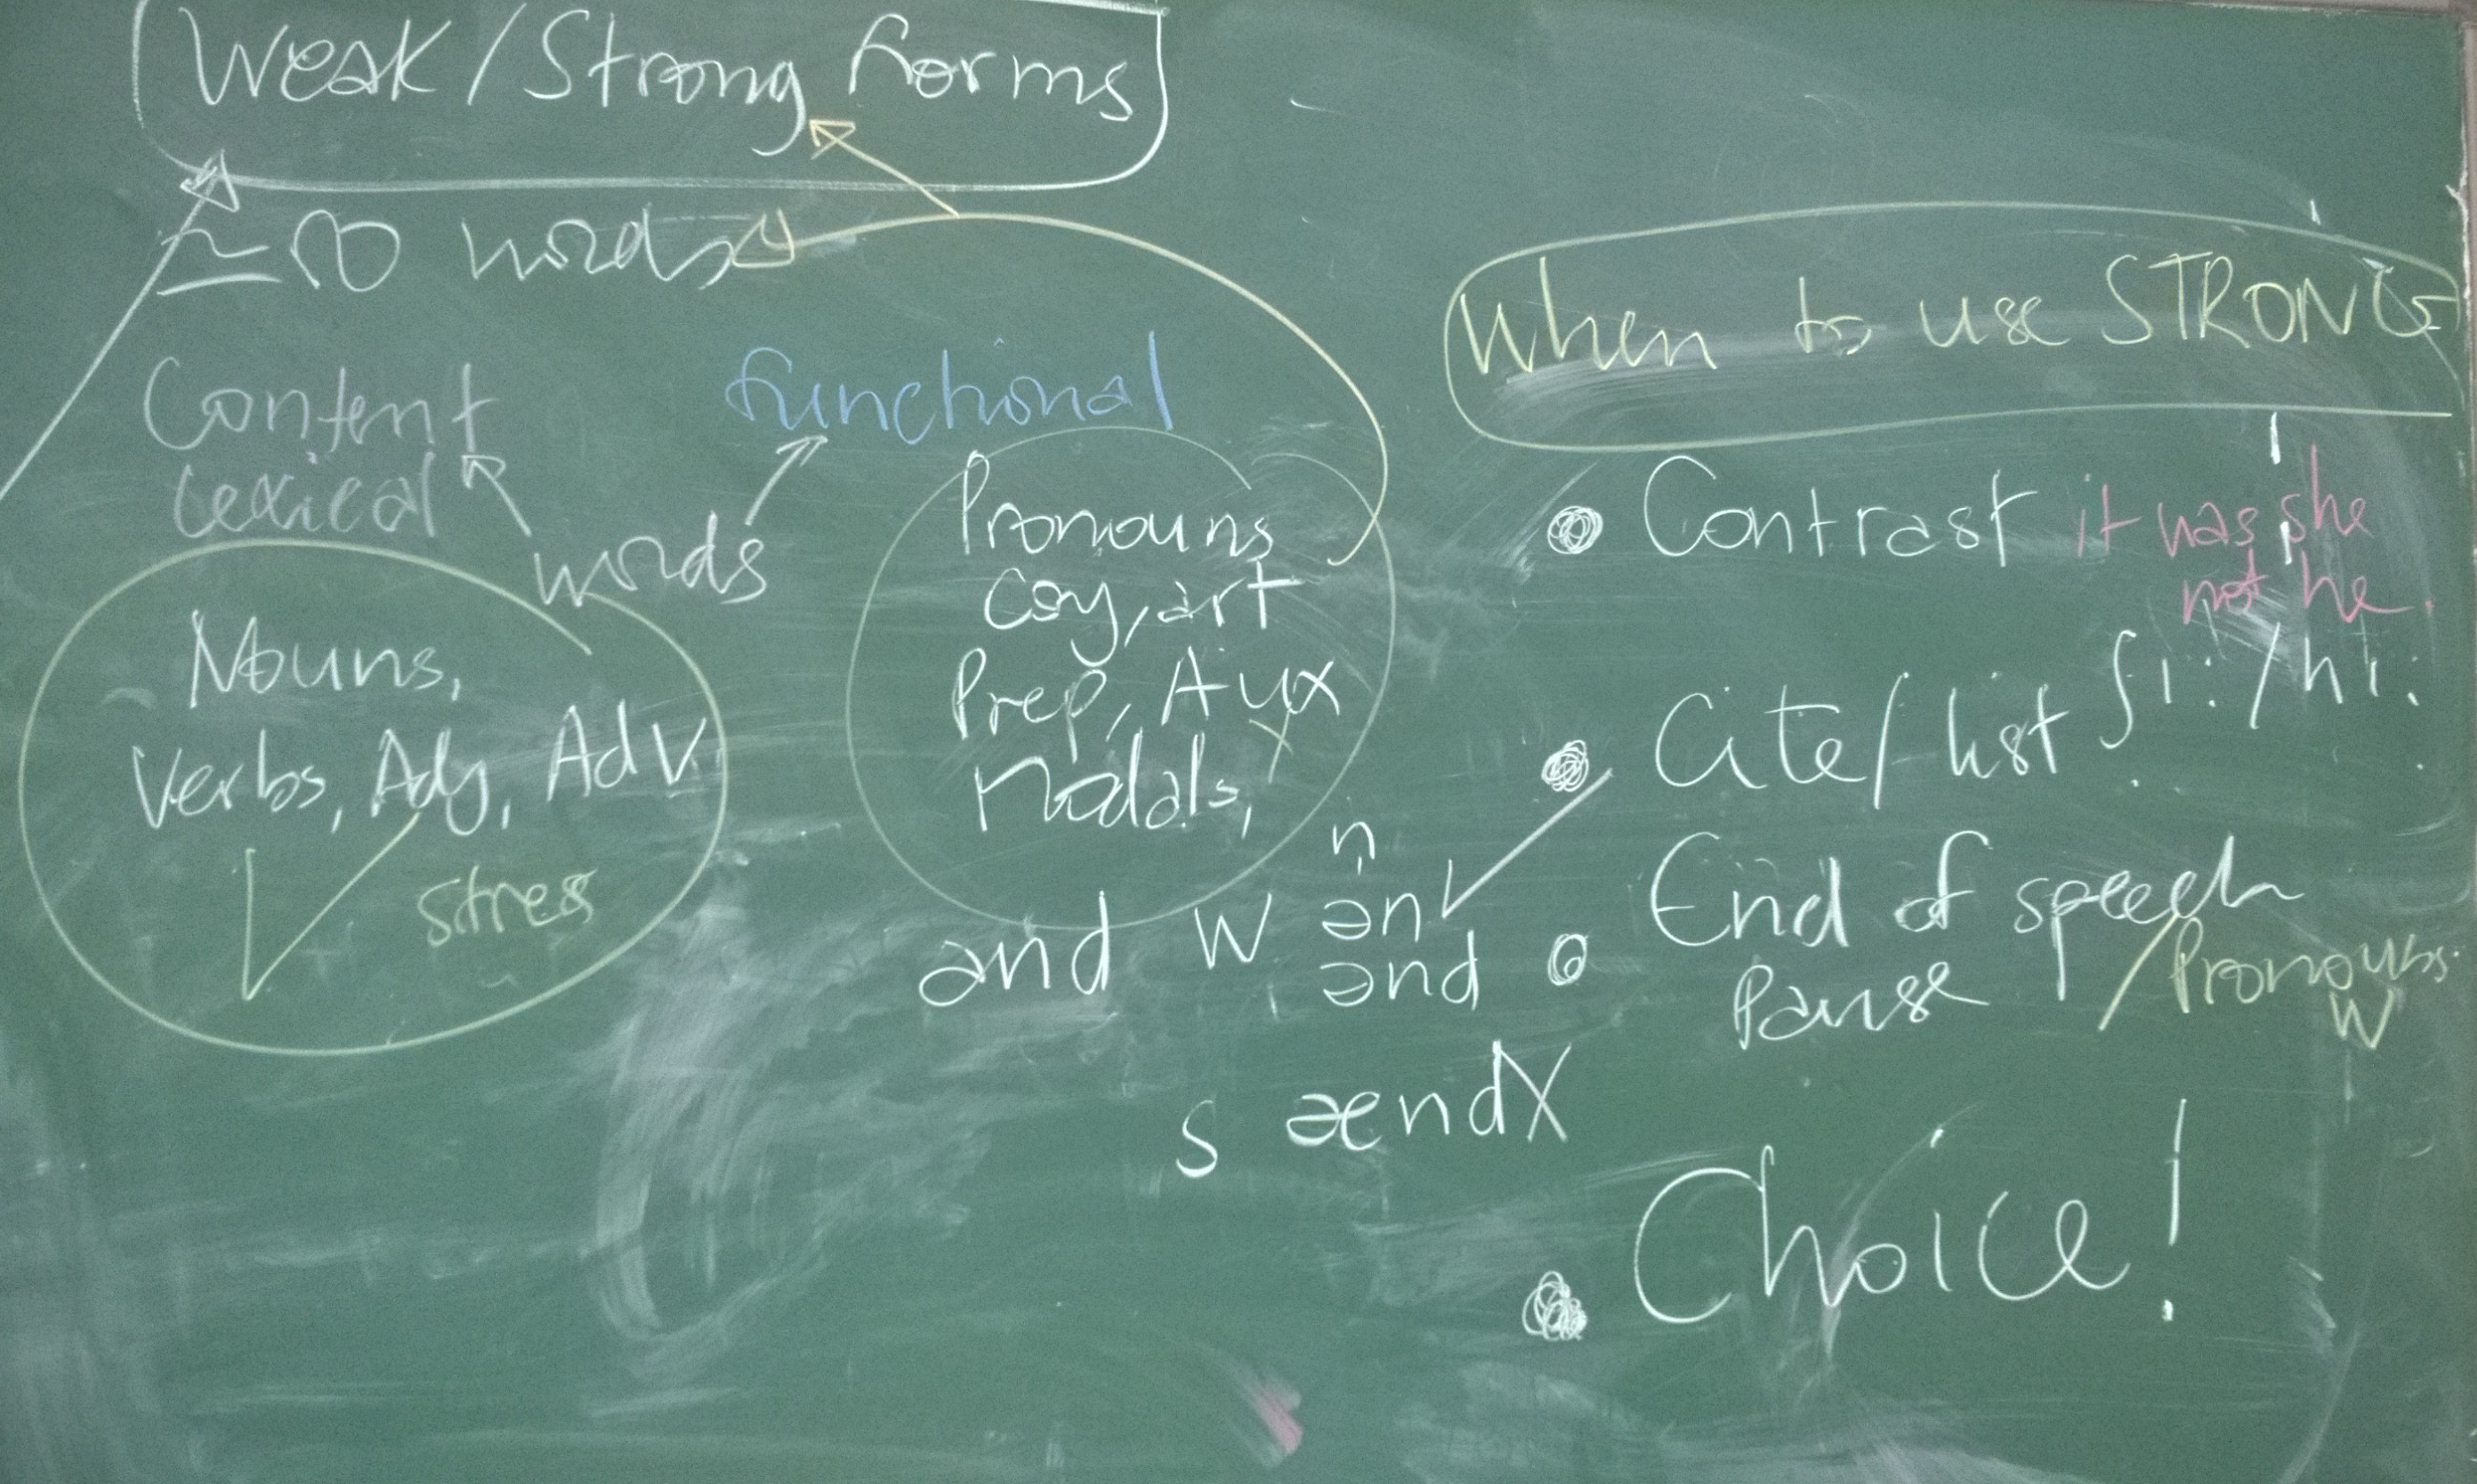 Weak/Strong forms
≃ words
Content
Lexical
functional
words
Nouns,
Verbs, Adj, Adv
stress
Pronouns
Coj, art
Prep, Aux
Modals,
and W n̩
ən
ənd
S ænd X
When to use STRONG
Contrast it was she
not he.
Cite/list ʃi:/hi:
End of speech
Pause / Pronouns
W
Choice!